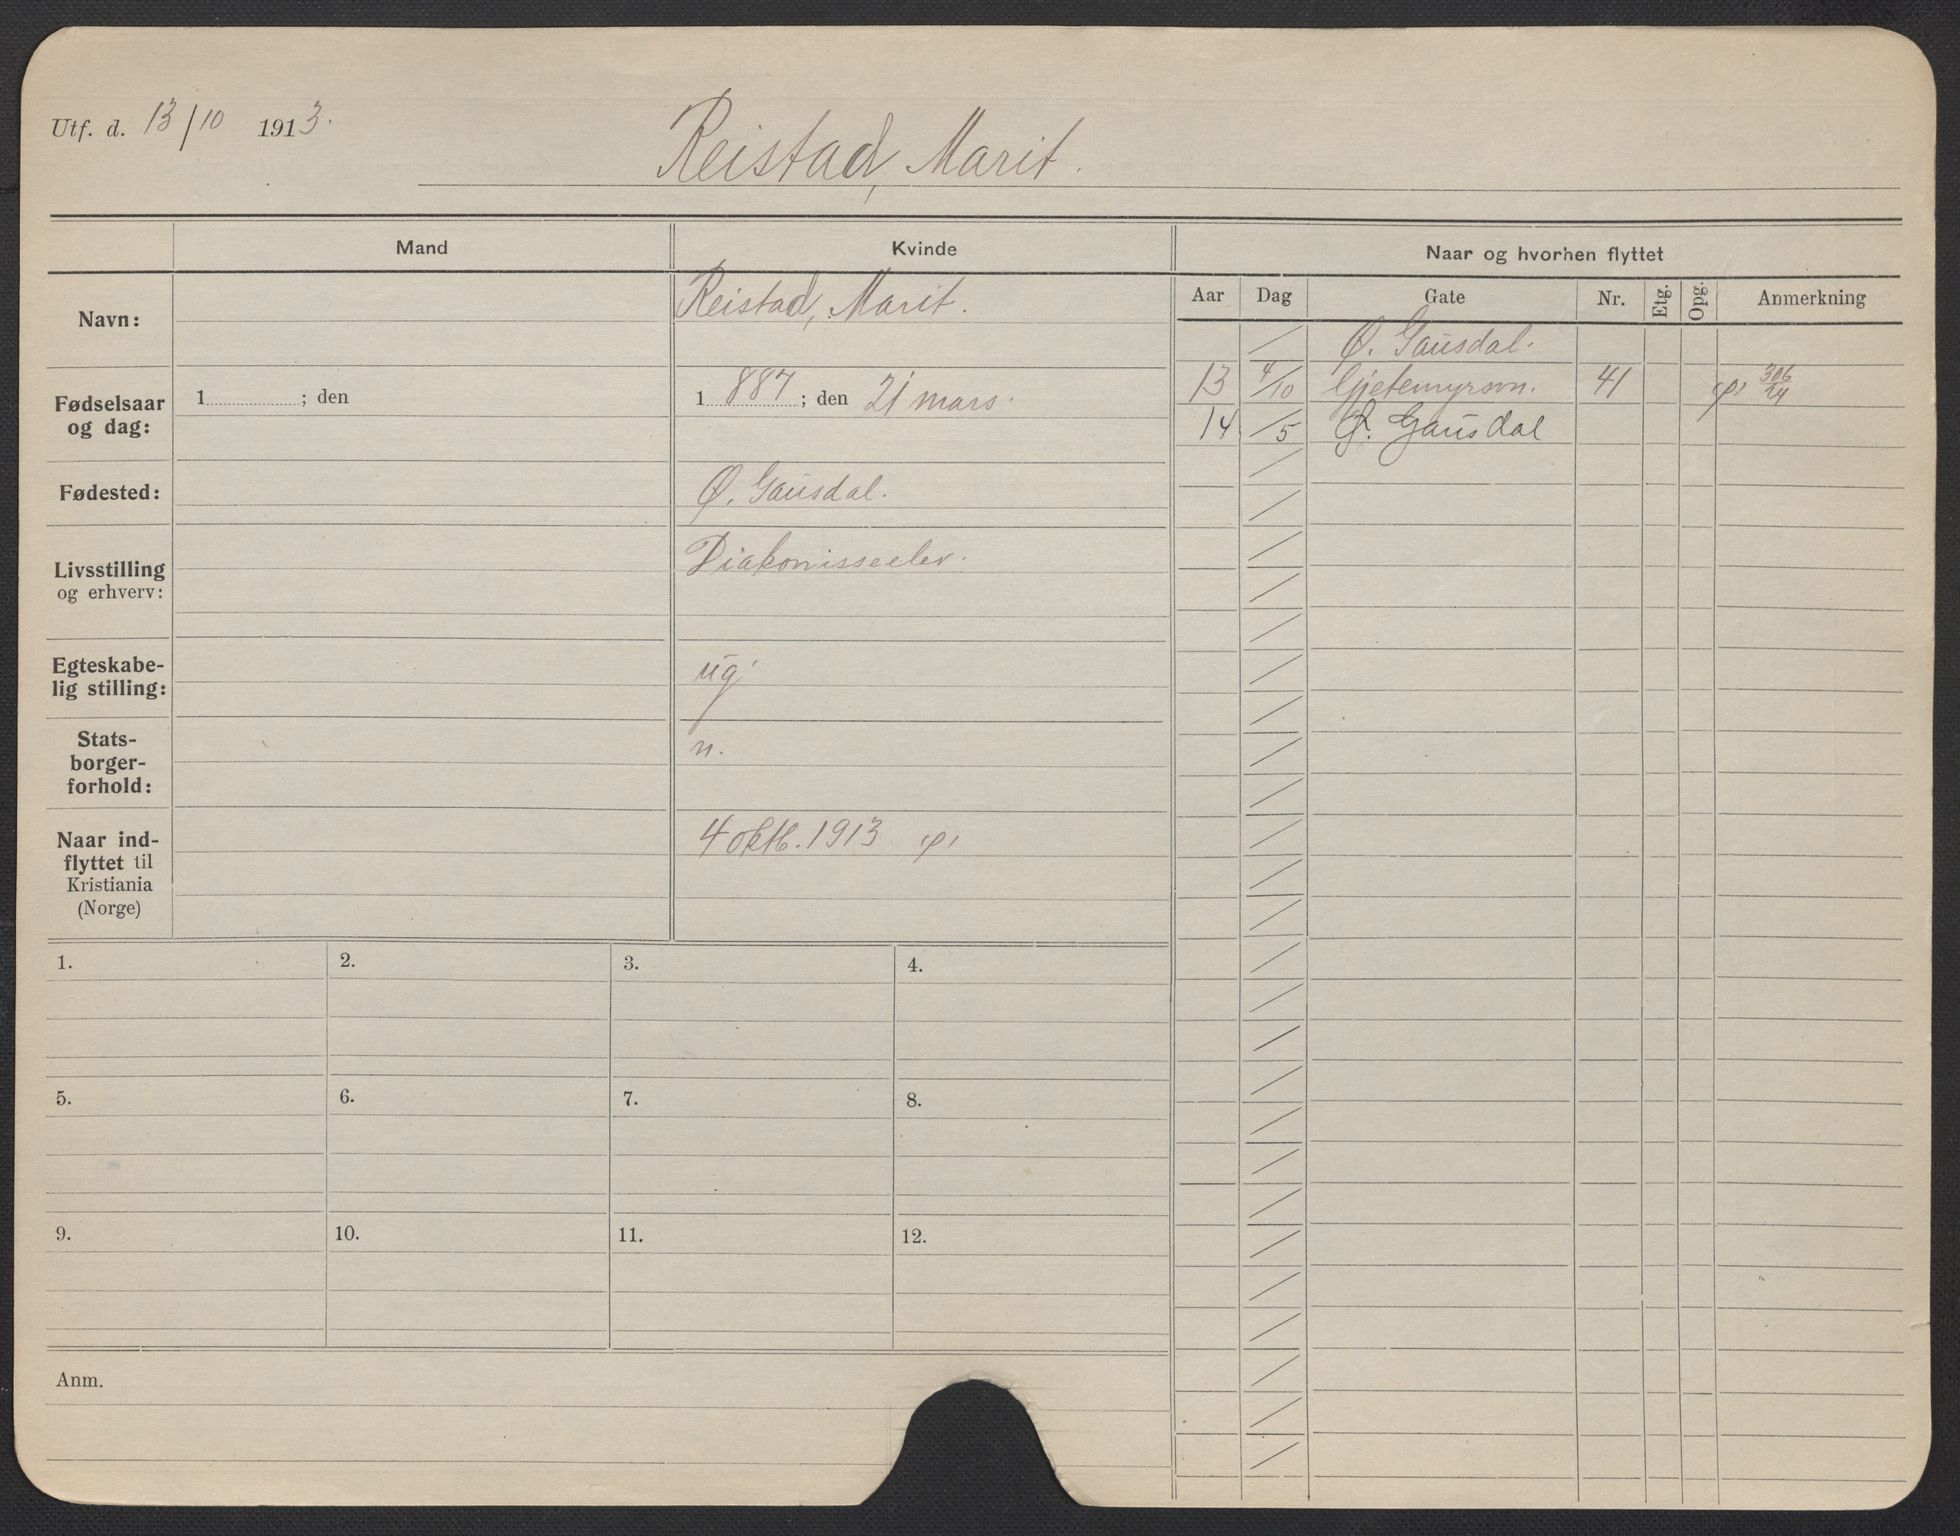 Utf. d. 13/10 1913.
Reistad, Marit.
Mand
Kvinde
Naar og hvorhen flyttet
Navn:
Reistad, Marit.
Fødselsaar
og dag:
1 ; den
1887 ; den 21 mars.
Fødested:
Ø. Gausdal.
Livsstilling
og erhverv:
Diakonisseelev.
Egteskabe-
lig stilling:
ug.
Stats-
borger-
forhold:
n.
Naar ind-
flyttet til
Kristiania
(Norge)
4 oktb. 1913
Aar Dag Gate Nr. Etg. Opg. Anmerkning
/ Ø. Gausdal.
13 4/10 Gjetemyrsvn. 41 306/24
14 /5 Ø. Gausdal
1. 2. 3. 4.
5. 6. 7. 8.
9. 10. 11. 12.
Anm.